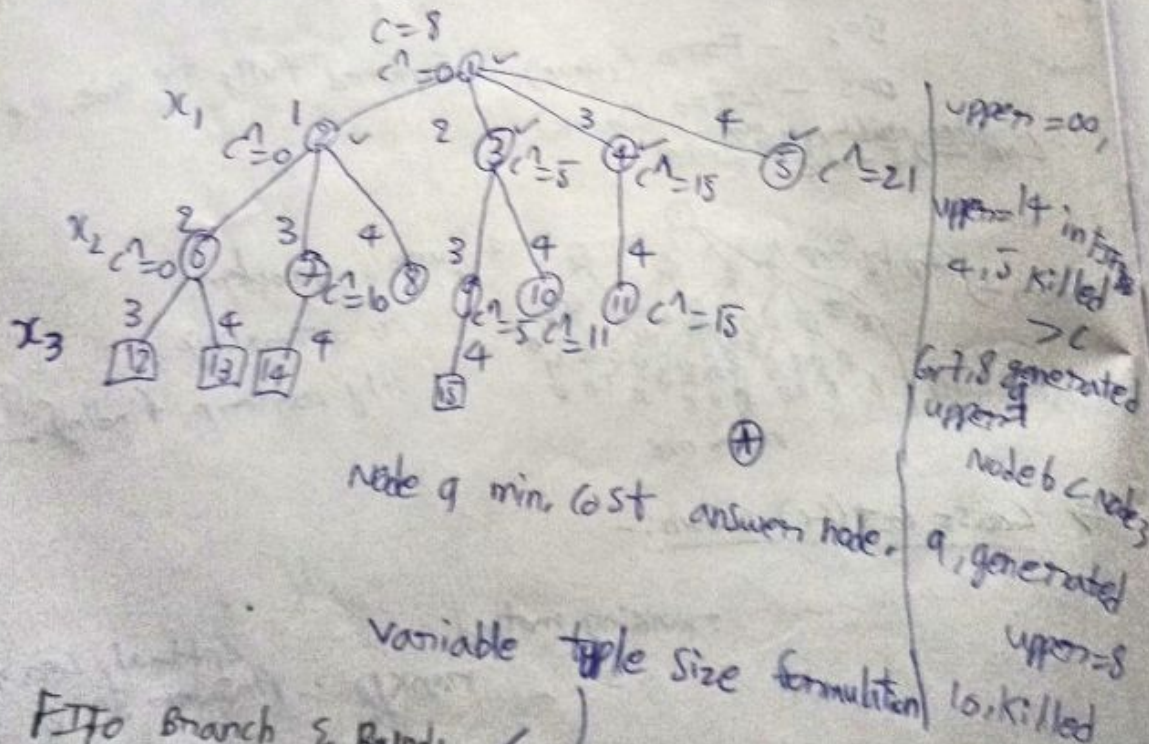 C=8
ĉ=0 1
x₁ 1 2 3 4
ĉ=0 2 3 ĉ=5 4 ĉ=15 5 ĉ=21
x₂ 2 3 4 3 4 4
ĉ=0 6 7 ĉ=6 8 9 ĉ=5 10 ĉ=11 11 ĉ=15
x₃ 3 4 4 4
12 13 14 15
A
Node 9 min. cost answer node.
variable tuple size formulation
FIFO Branch &
upper=∞,
upper=14 in
4,5 killed
>C
6,7,8 generated
upper=9
Node 6 < node 3
9, generated
upper=8
10, killed